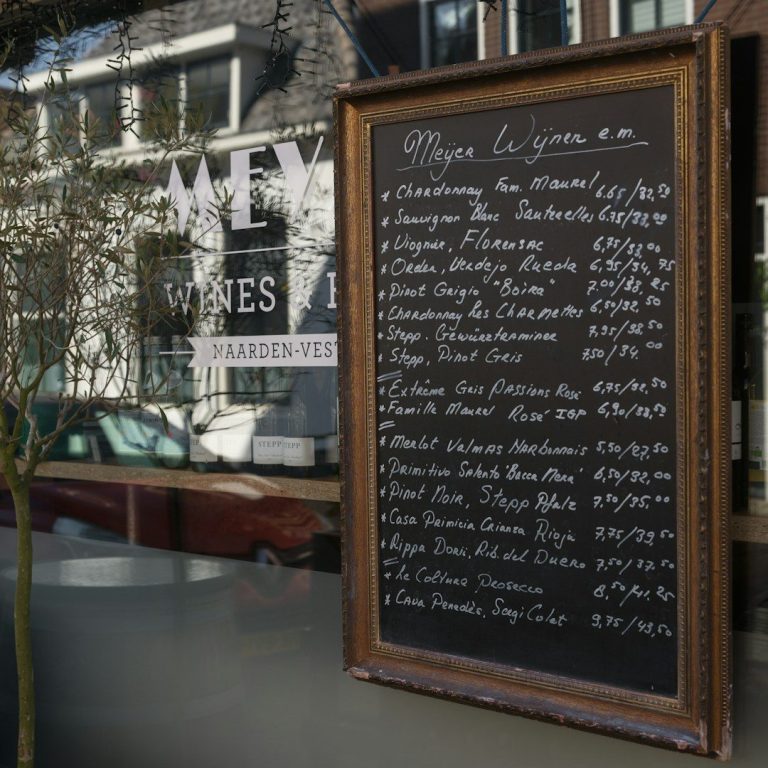 MEY
WINES &
NAARDEN-VEST
STEPP
Meijer Wijnen e.m.
* Chardonnay Fam. Maurel 6.65/32,50
* Sauvignon Blanc Sauterelles 6.75/33,00
* Viognier, Florensac 6,75/33,00
* Orden, Verdejo Rueda 6,95/34,75
* Pinot Grigio "Bòira" 7.00/33,25
* Chardonnay Les Charmettes 6,50/32,50
* Stepp. Gewürztraminer 7,95/38,50
* Stepp, Pinot Gris 7,50/34,00
* Extrême Gris Passions Rosé 6,75/32,50
* Famille Maurel Rosé IGP 6,90/33,50
* Merlot Valmas Narbonnais 5,50/27,50
* Primitivo Salento 'Bacca Nera' 6,50/32,00
* Pinot Noir, Stepp Pfalz 7,50/35,00
* Casa Primicia Crianza Rioja 7,75/39,50
* Rippa Dorii, Rib. del Duero 7,50/37,50
* Le Colture Prosecco 8,50/41,25
* Cava Penedès, 9,75/43,50